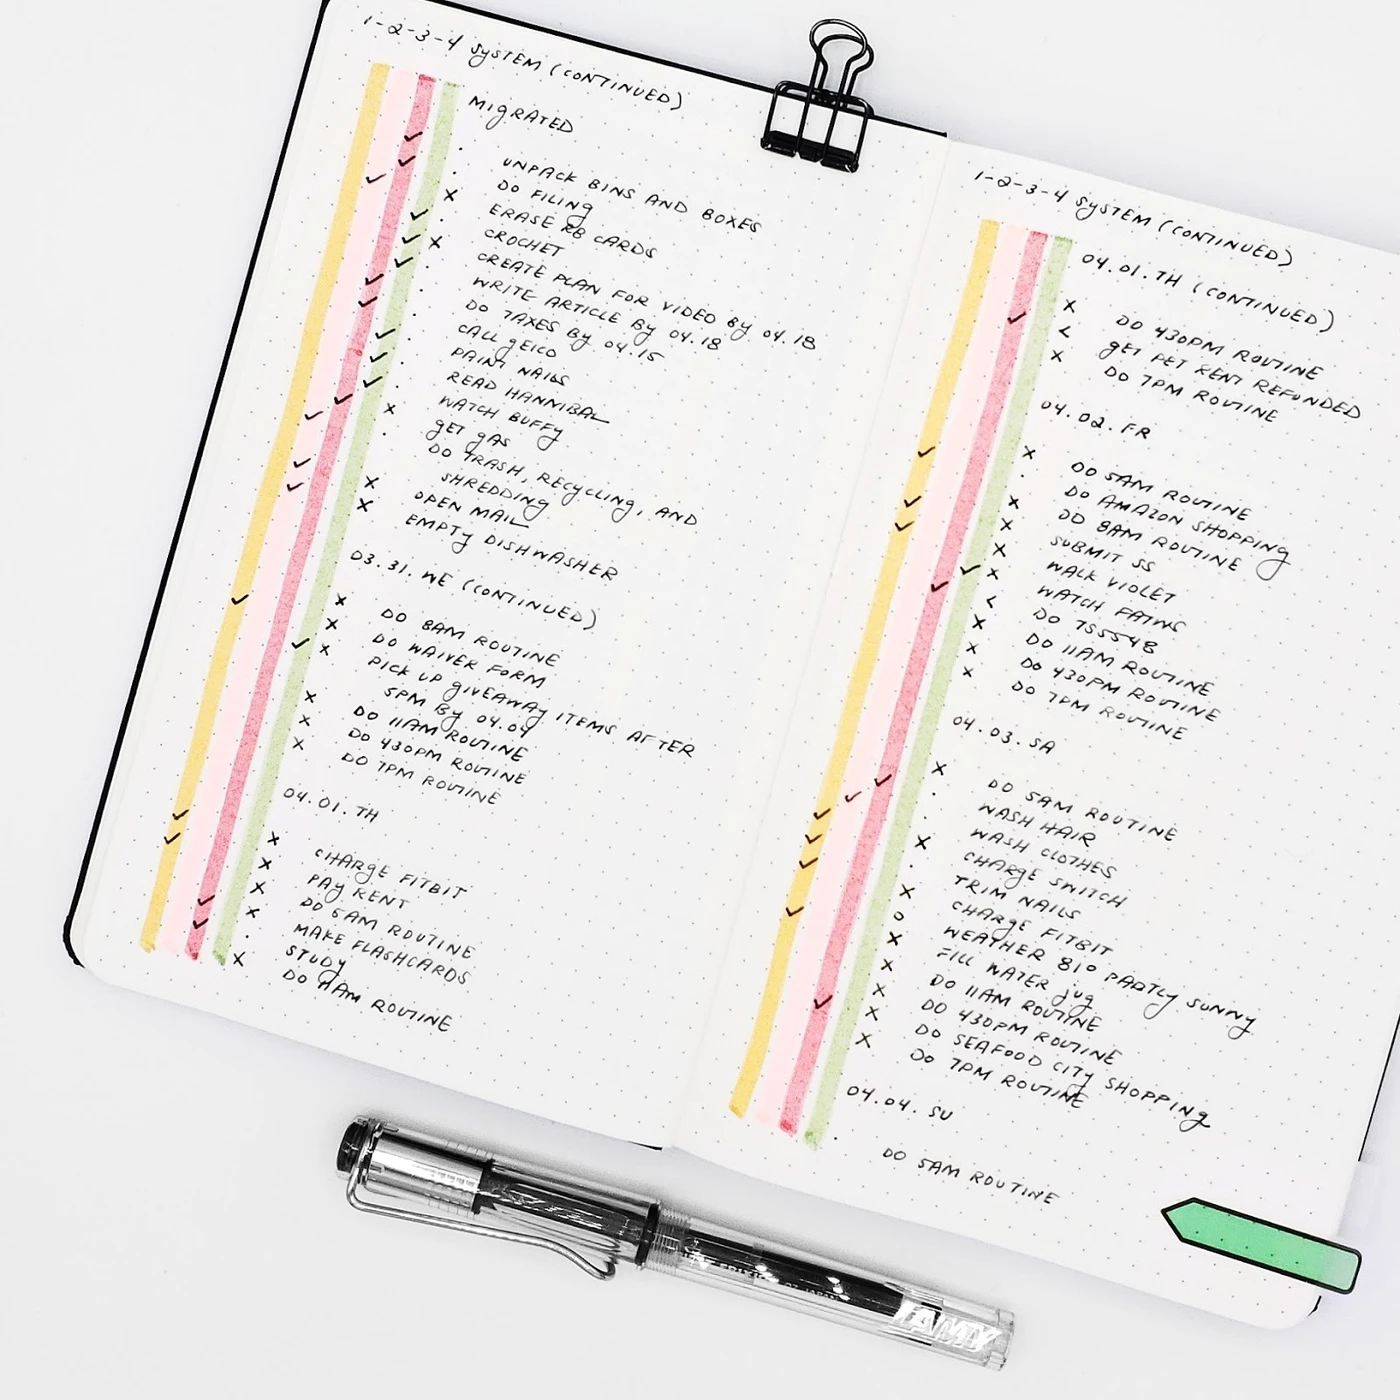 1-2-3-4 SYSTEM (CONTINUED)
MIGRATED
✓ · UNPACK BINS AND BOXES
✓ · DO FILING
✓ × ERASE RB CARDS
✓ · CROCHET
✓ × CREATE PLAN FOR VIDEO BY 04.18
✓ · WRITE ARTICLE BY 04.18
✓ · DO TAXES BY 04.15
✓ · CALL GEICO
✓ · PAINT NAILS
✓ · READ HANNIBAL
✓ · WATCH BUFFY
✓ × GET GAS
✓ · DO TRASH, RECYCLING, AND
SHREDDING
✓ × OPEN MAIL
✓ × EMPTY DISHWASHER
03.31.WE (CONTINUED)
✓ × DO 8AM ROUTINE
× DO WAIVER FORM
✓ × PICK UP GIVEAWAY ITEMS AFTER
5PM BY 04.04
× DO 11AM ROUTINE
× DO 430PM ROUTINE
× DO 7PM ROUTINE
04.01.TH
✓ × CHARGE FITBIT
✓ × PAY RENT
× DO 5AM ROUTINE
✓ × MAKE FLASHCARDS
✓ · STUDY
× DO 11AM ROUTINE
1-2-3-4 SYSTEM (CONTINUED)
04.01.TH (CONTINUED)
× DO 430PM ROUTINE
✓ < GET PET RENT REFUNDED
× DO 7PM ROUTINE
04.02.FR
✓ × DO 5AM ROUTINE
· DO AMAZON SHOPPING
✓ × DO 8AM ROUTINE
✓ × SUBMIT SS
× WALK VIOLET
✓ × WATCH FATWS
✓ < DO 75554B
× DO 11AM ROUTINE
× DO 430PM ROUTINE
× DO 7PM ROUTINE
04.03.SA
× DO 5AM ROUTINE
✓ · WASH HAIR
✓ · WASH CLOTHES
✓ × CHARGE SWITCH
✓ · TRIM NAILS
✓ × CHARGE FITBIT
o WEATHER 81° PARTLY SUNNY
✓ × FILL WATER JUG
× DO 11AM ROUTINE
× DO 430PM ROUTINE
✓ × DO SEAFOOD CITY SHOPPING
× DO 7PM ROUTINE
04.04.SU
· DO 5AM ROUTINE
LAMY